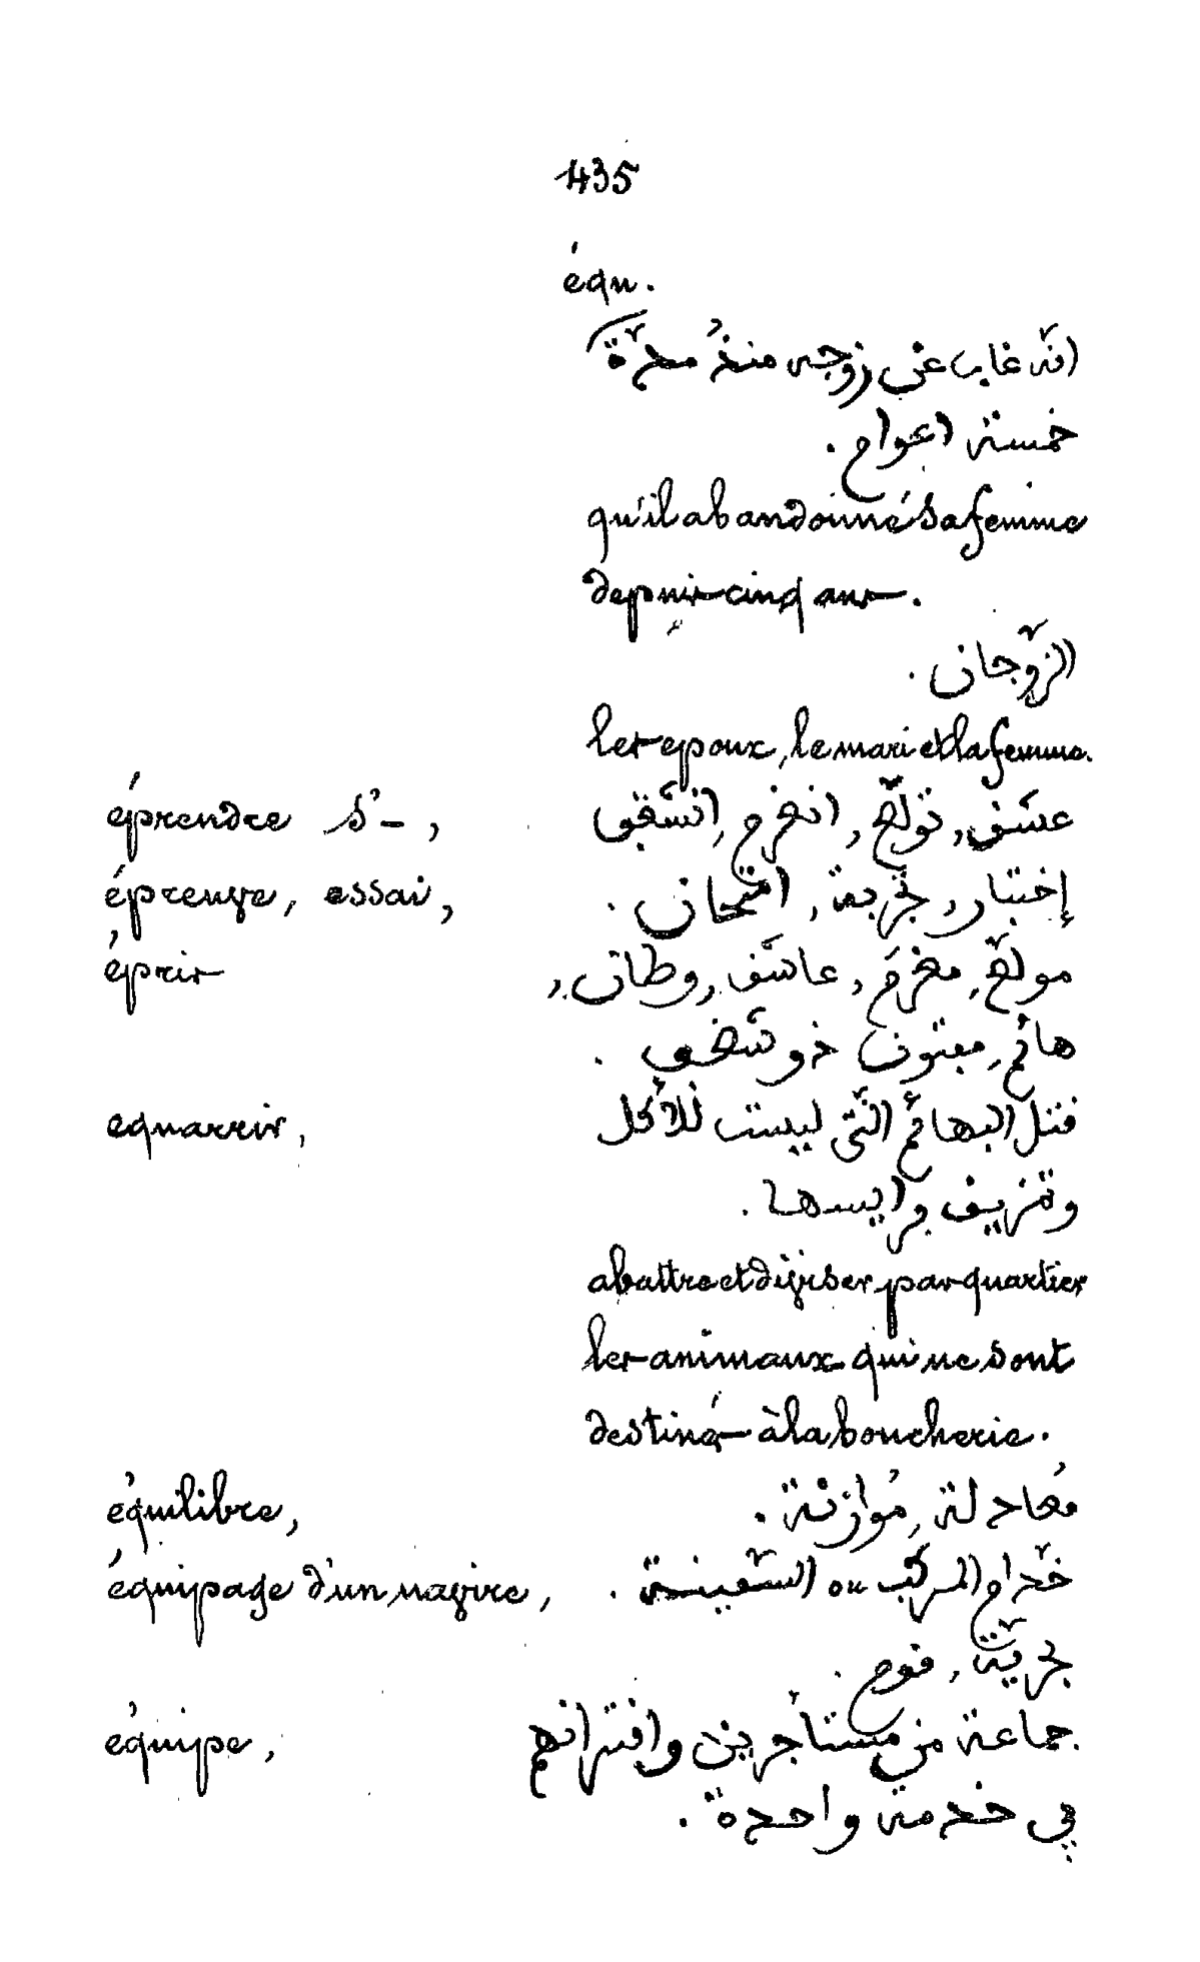 435
équ.
انّه غايب عن زوجه منذُ مدّة
خمسة اعوام .
qu'il abandonné sa femme
depuis cinq ans .
الزّوجان .
les epoux, le mari et la femme.
éprendre s'— , عشق, تولّع, انغرم, انشقق
épreuve, essai, إختبار, تجربة, امتحان .
épris مولّع, مغرم, عاشق, وطان,
هائم, مفتون ذو شغف .
equarrir, قتل البهائم الّتي ليست للأكل
وتمزيف جرايسها .
abattre et diviser par quartier
les animaux qui ne sont
destinés à la boucherie .
équilibre, مُعادلة, مُوازنة .
équipage d'un navire, خدّام المركب ou السّفينة .
بحريّة, قوم .
équipe, جماعة من مستأجرين واقترانهم
في خدمة واحدة .